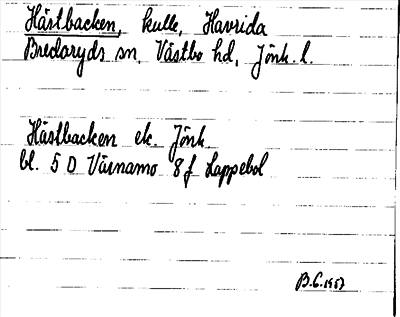 Hästbacken, kulle, Havrida
Bredaryds sn, Västbo hd, Jönk. l.
Hästbacken ek. Jönk.
bl. 5 D Värnamo 8 f Lappebol
B.G. 1957